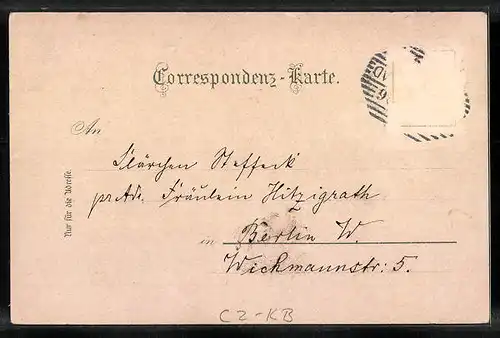 Correspondenz-Karte.
An
Klärchen Steffeck
pr. Adr. Fräulein Hitzigrath
in Berlin W.
Wichmannstr: 5.
Nur für die Adresse.
CZ-KB